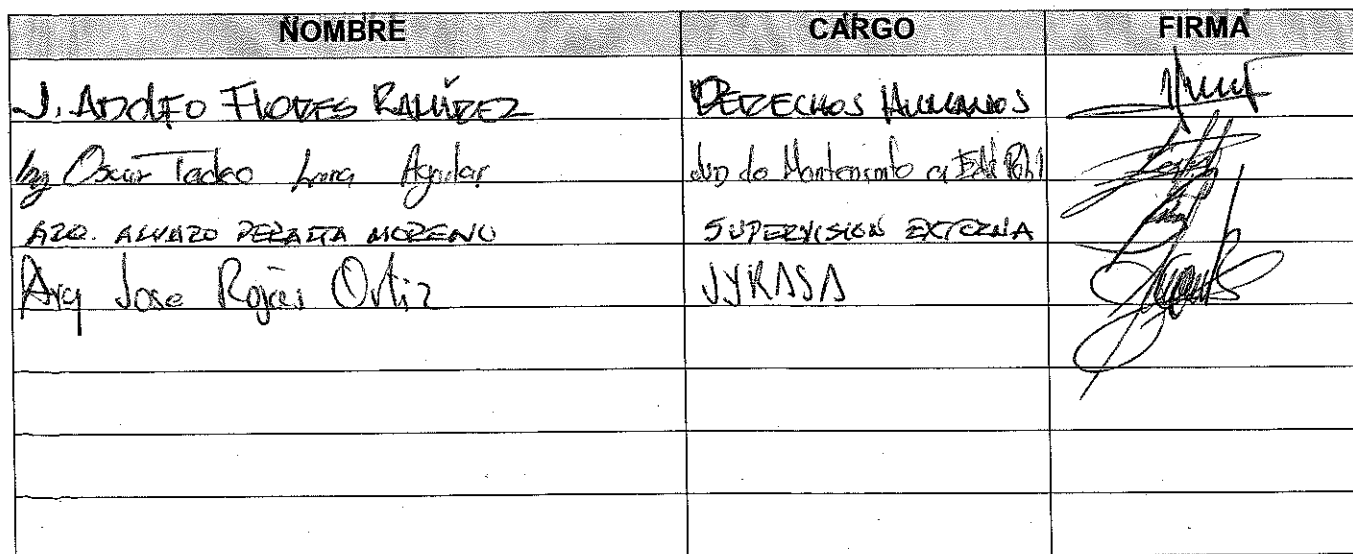 NOMBRE CARGO FIRMA
J. ADOLFO FLORES RAMÍREZ DERECHOS HUMANOS
Ing Oscar Tadeo Luna Aguilar JUD de Mantenimiento a
ARQ. ALVARO PERALTA MORENO SUPERVISIÓN EXTERNA
Arq Jose Rojas Ortiz JYRASA